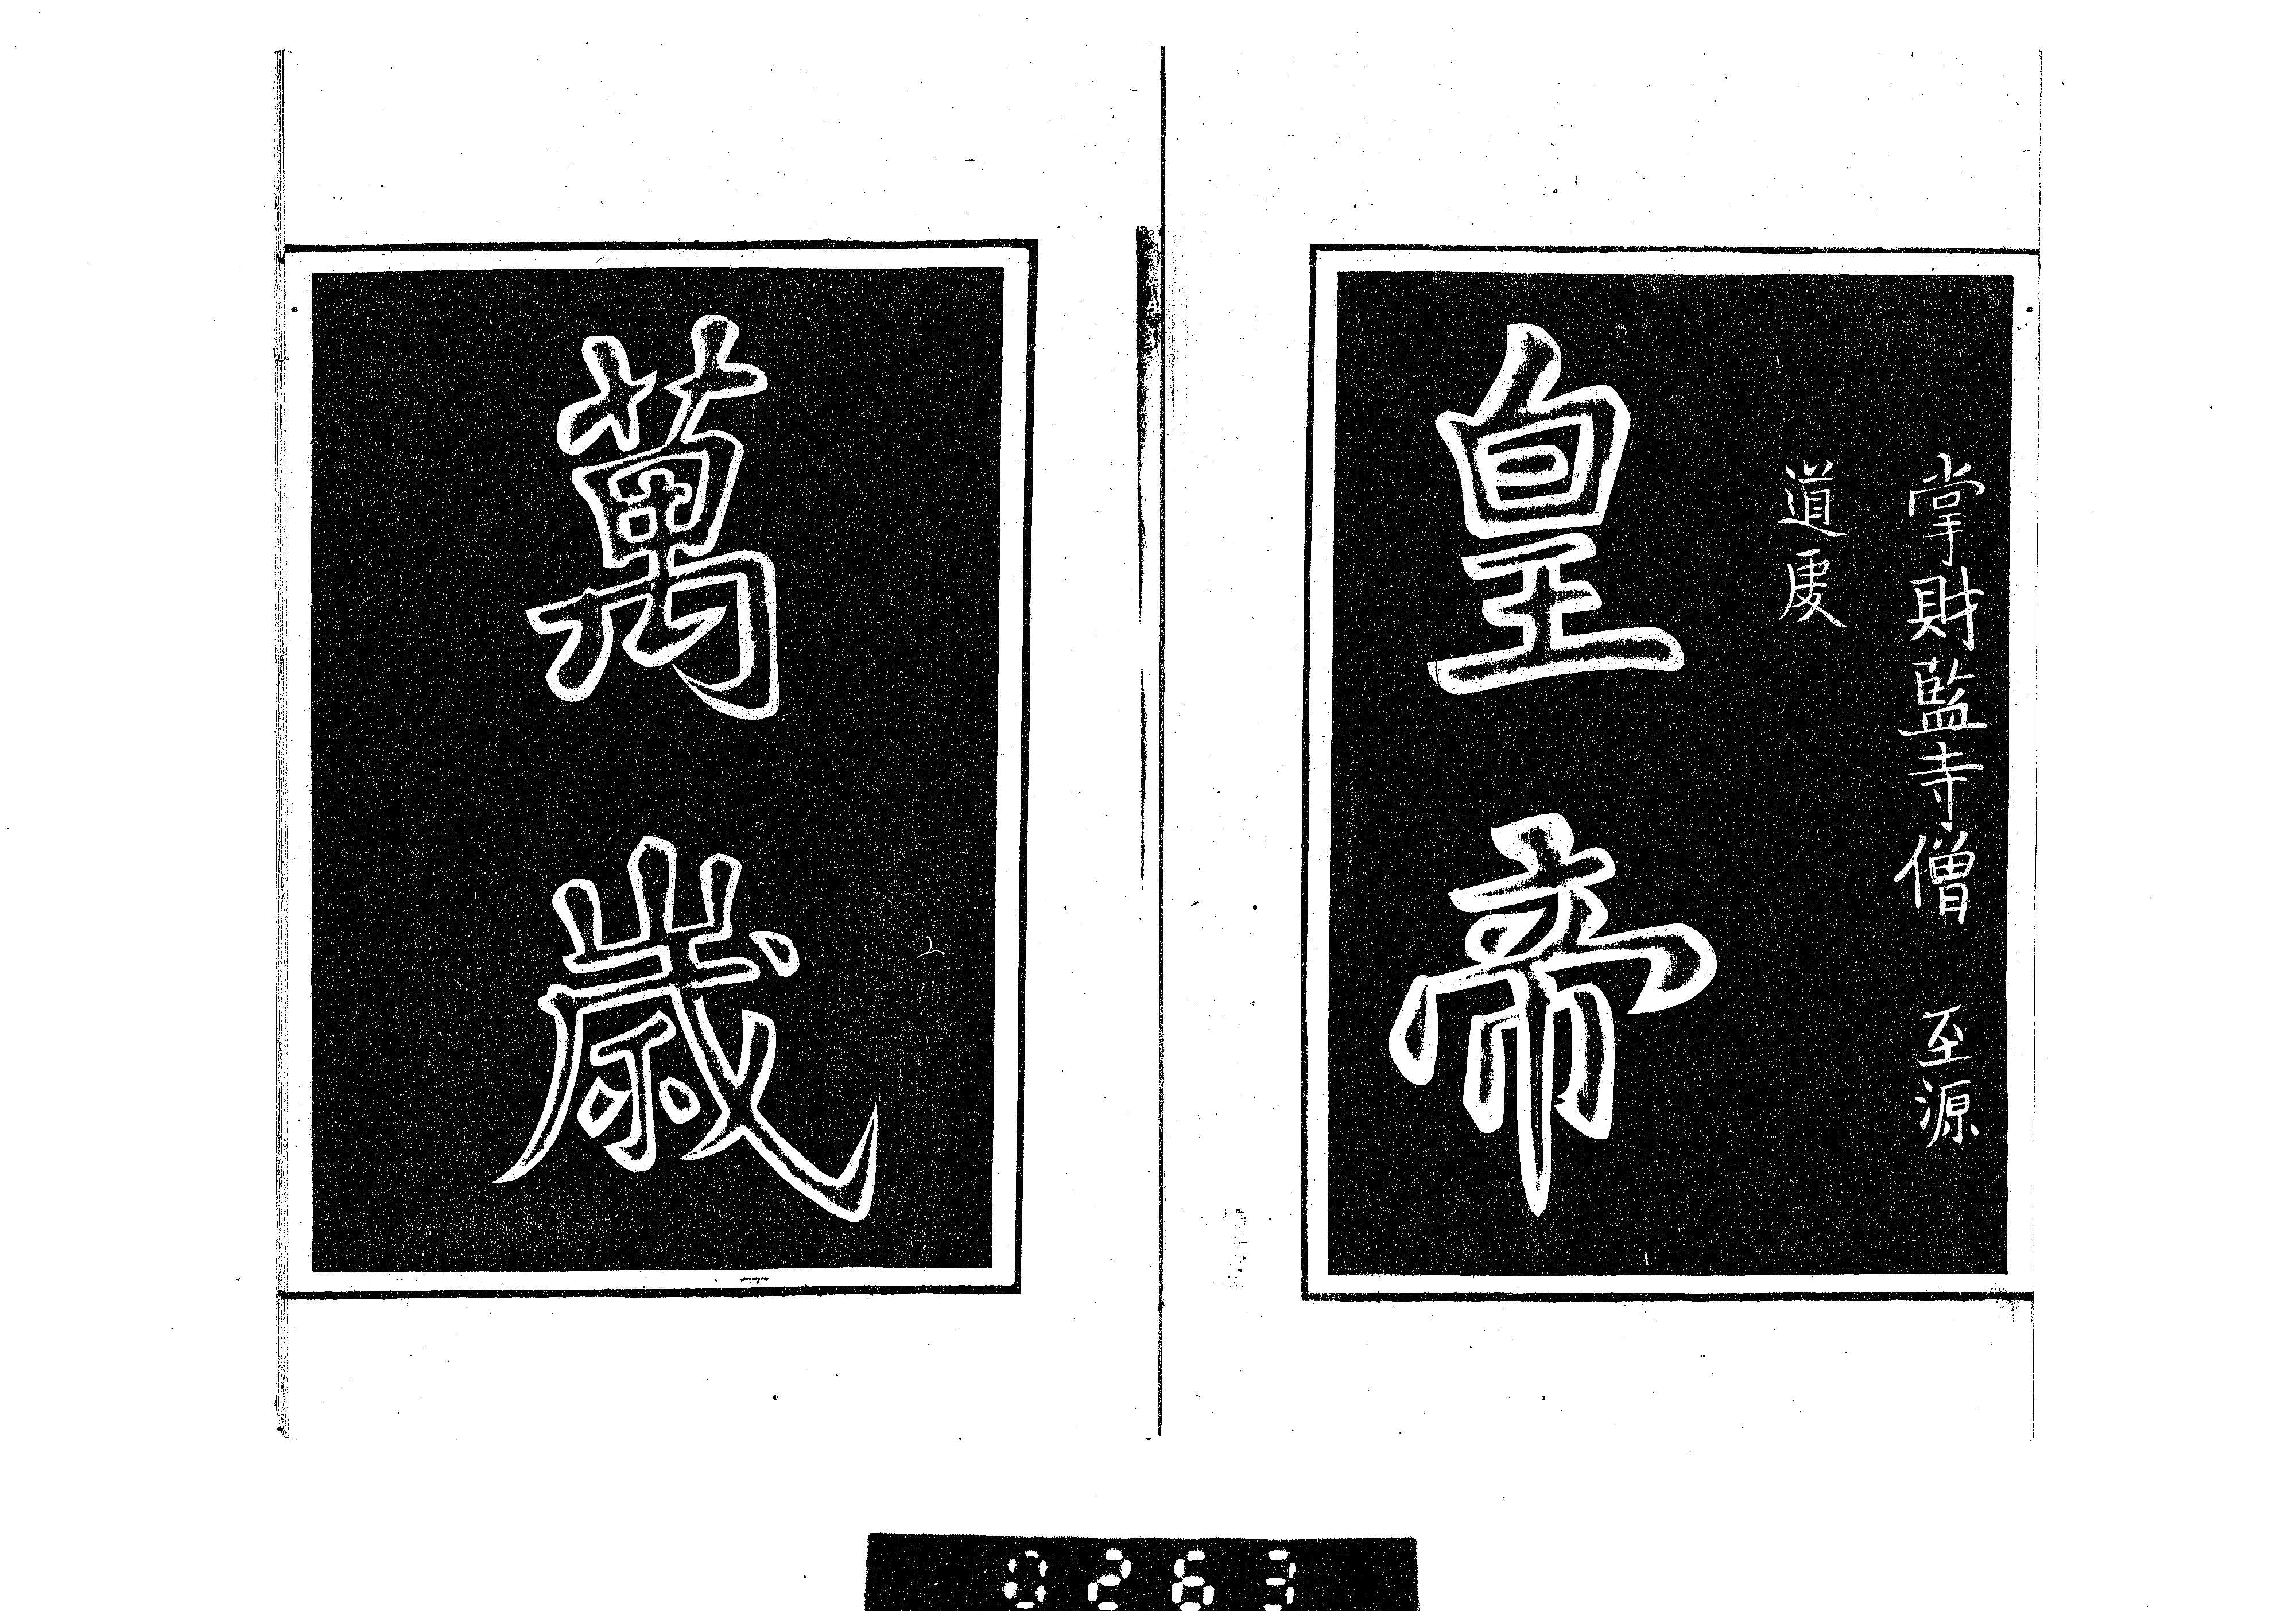 掌財監寺僧 至源
道虔
皇帝
萬歲
0263